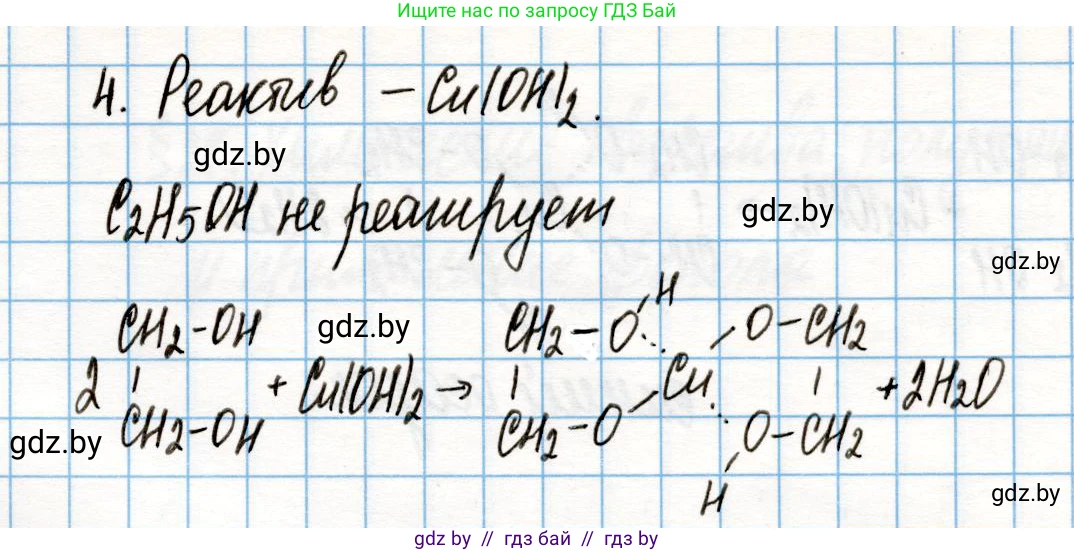 Ищите нас по запросу ГДЗ Бай
4. Реактив – Cu(OH)2.
gdz.by
C2H5OH не реагирует
gdz.by
gdz.by
H
CH2-OH gdz.by CH2-O O-CH2
2 + Cu(OH)2 → Cu +2H2O
CH2-OH CH2-O O-CH2
gdz.by
H
gdz.by
gdz by // гдз бай // gdz by